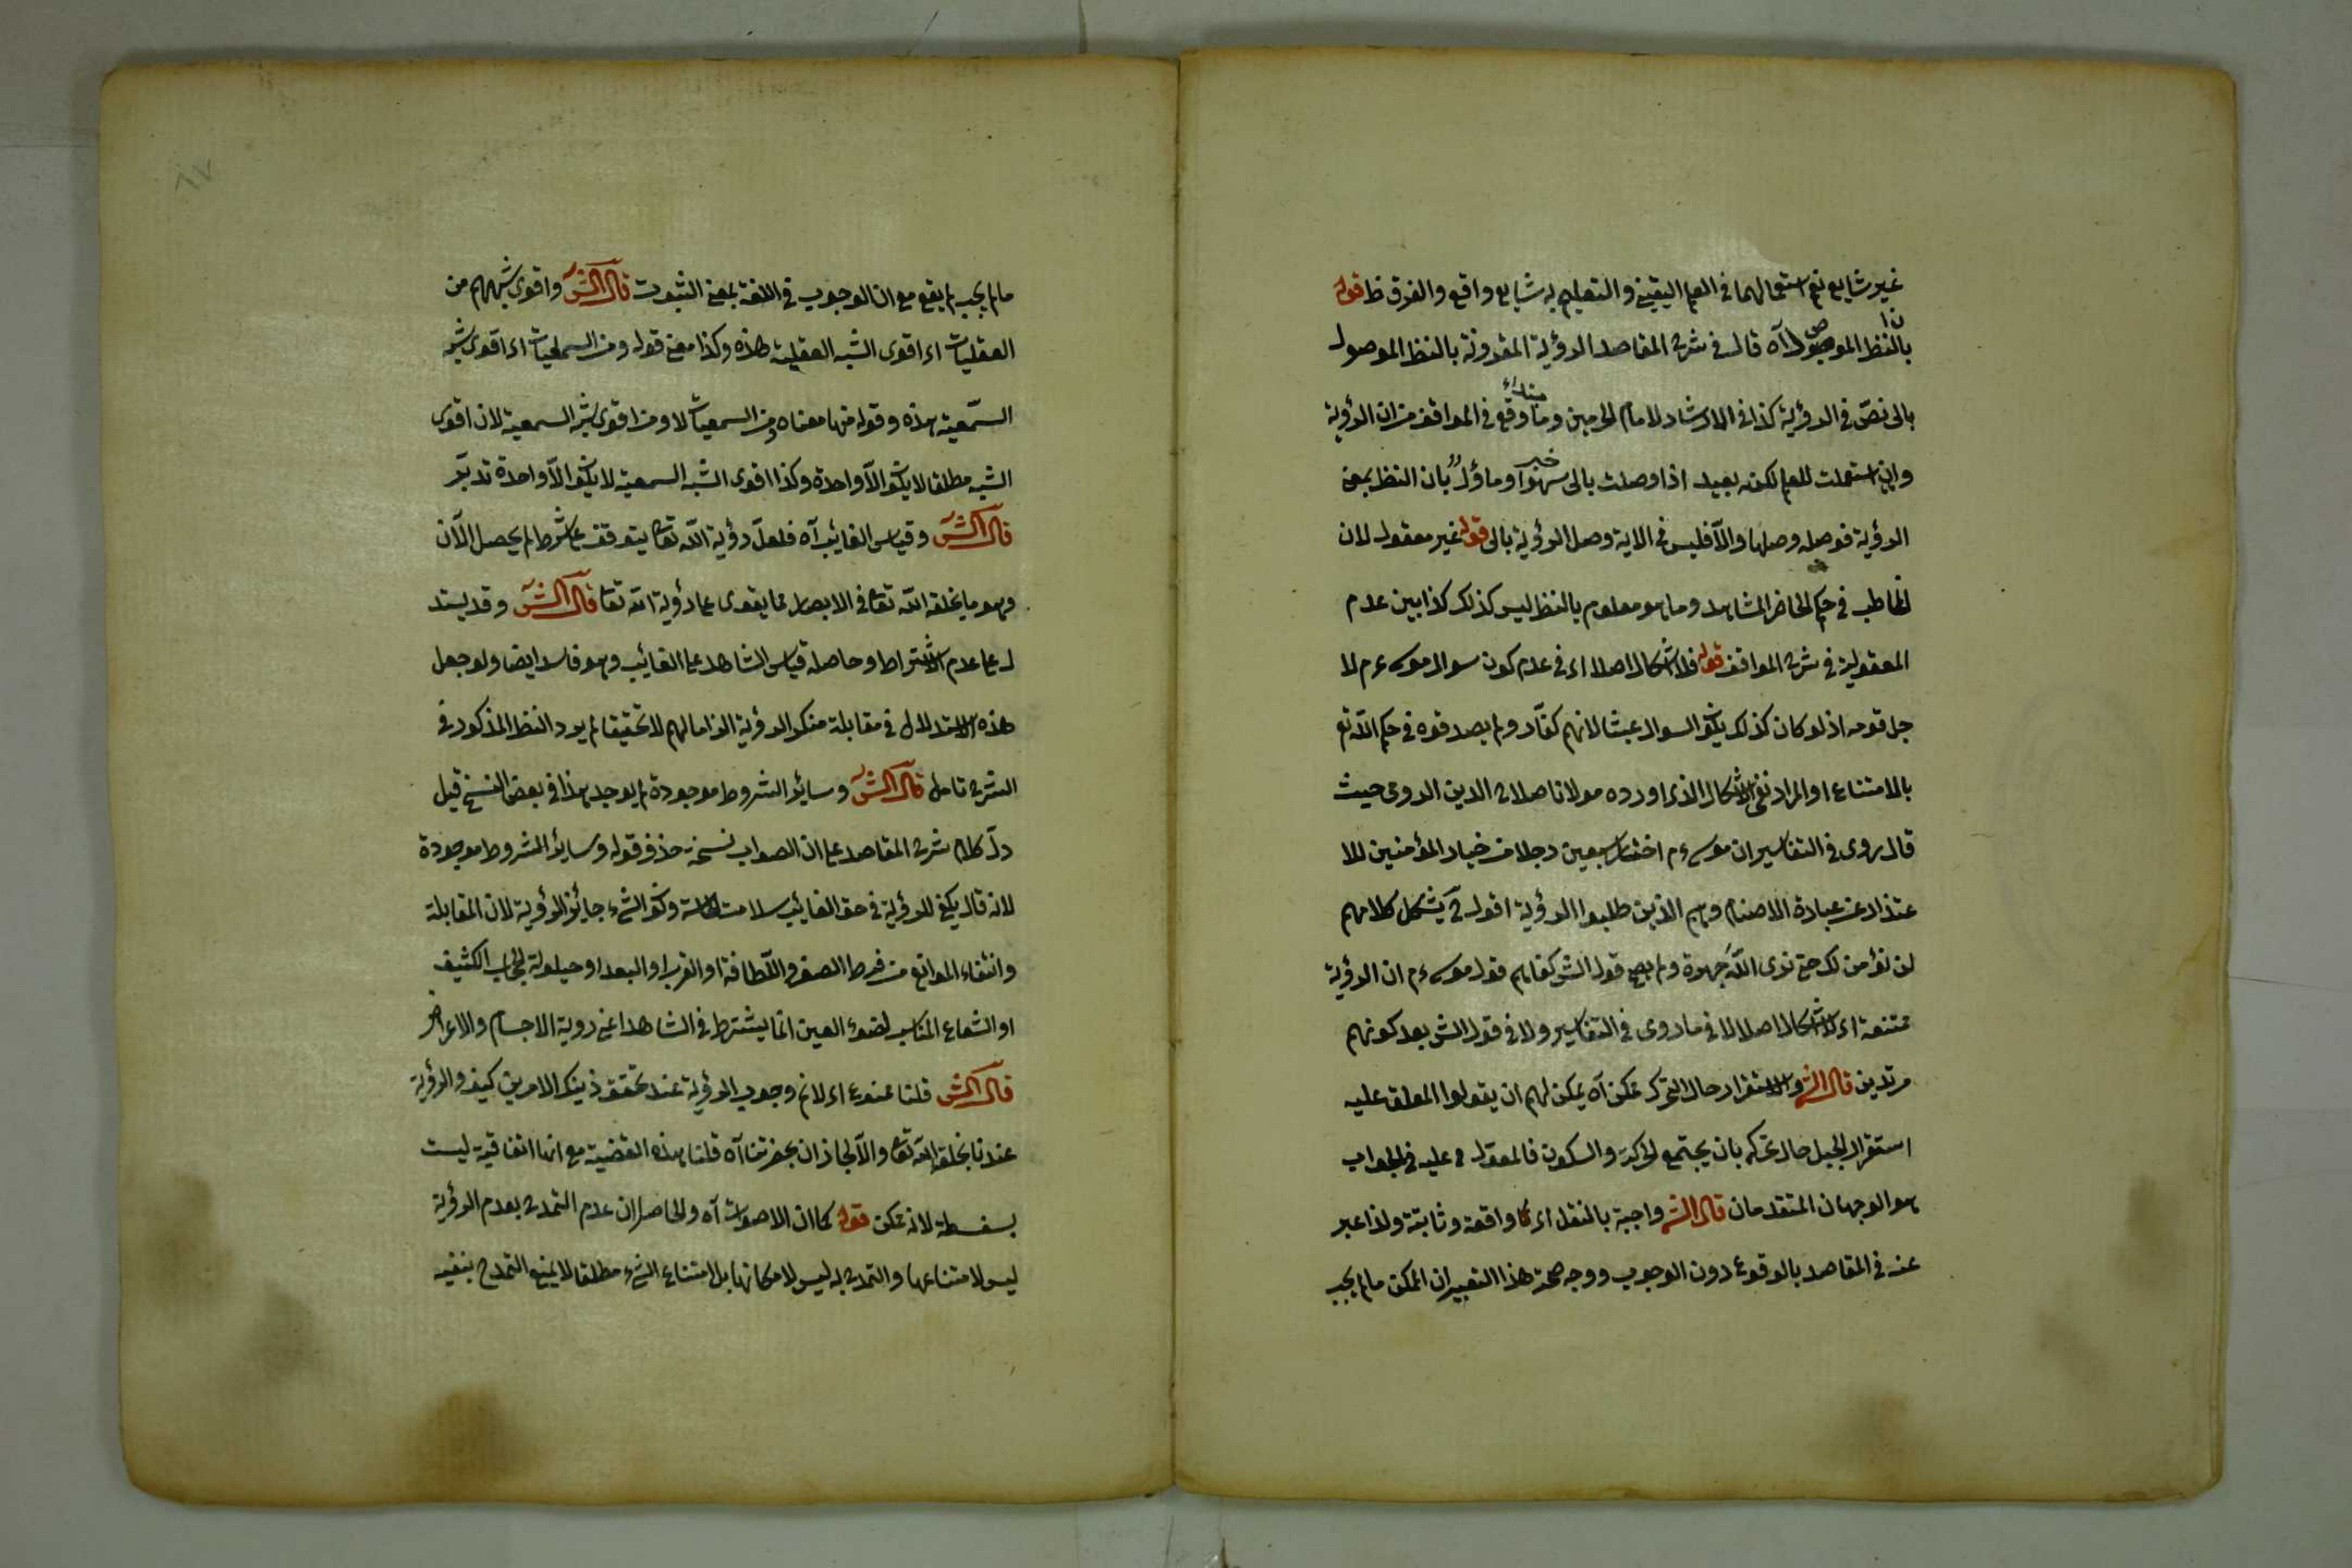 غير شايع نعم استعمالهما في العلم اليقيني والتعليم به شايع واقع والفرق ظ قوله
بالنظر الموصول آه قال في شرح المقاصد الرؤية المقرونة بالنظر الموصول
بالى نص في الرؤية كذا في الارشاد لامام الحرمين وما وقع في المواقف من ان الرؤية
وان استعملت للعلم لكنه بعيد اذا وصلت بالى سهو خبر وما ؤل بان النظر بمعنى
الرؤية فوصله وصلها والا فليس في الاية وصل الرؤية بالى قوله غير معقول لان
المخاطب في حكم الحاضر المشاهد وما هو معلوم بالنظر ليس كذلك كذا بين عدم
المعقولية في شرح المواقف قوله فلا اشكال اصلا اى في عدم كون سوال موسى عم لا
جل قومه اذ لو كان كذلك يكون السوال عبثا لانهم كفار ولم يصدقوه في حكم الله تع
بالامتناع او المراد نفى الاشكال الذى اورده مولانا صلاح الدين الرومى حيث
قال روى في التفاسير ان موسى عم اختار سبعين رجلا من خيار المؤمنين للا
عتذار عن عبادة الاصنام وهم الذين طلبوا الرؤية اقول ح يشكل كلامهم
لن نؤمن لك حتى نرى الله جهرة ولم يصح قول الش كفاهم قول موسى عم ان الرؤية
ممتنعة اى لا اشكال اصلا لا في ما روى في التفاسير ولا في قول الش بعد كونهم
مرتدين قال الش والاستقرار حال التحرك ممكن آه يمكن لهم ان يقولوا المعلق عليه
استقرار الجبل حال تحركه بان يجتمع الحركة والسكون فالمعول ح عليه في الجواب
هو الوجهان المتقدمان قال الش واجبة بالنقل اى واقعة وثابتة ولذا عبر
عنه في المقاصد بالوقوع دون الوجوب ووجه صحة هذا التعبير ان الممكن مالم يجب
مالم يجب لم يقع مع ان الوجوب في اللغة بمعنى الثبوت قال الش واقوى شبههم من
العقليات اى اقوى الشبه العقلية هذه وكذا معنى قوله ومن السمعيات اى اقوى شبه
السمعية هذه وقوله منها معناه من السمعيات لا ومن اقوى شبه السمعية لان اقوى
الشبه مطلقا لا يكون الا واحدة وكذا اقوى الشبه السمعية لا يكون الا واحدة تدبر
قال الش وقياس الغائب آه فلعل رؤية الله تعالى يتوقف على شرط لم يحصل الآن
وهو ما يخلقه الله تعالى في الابصار مما يقوى على رؤية الله تعالى قال الش وقد يستد
ل على عدم الاشتراط وحاصله قياس الشاهد على الغائب وهو فاسد ايضا ولو جعل
هذه الاستدلال في مقابلة منكر الرؤية الزاما لهم لا تحقيقا لم يرد النظر المذكور في
الشرح تامل قال الش وسائر الشروط موجودة لم يوجد هذا في بعض النسخ قيل
دل كلام شرح المقاصد على ان الصواب نسخة حذف قوله وسائر الشروط موجودة
لانه قال يكفى للرؤية في حق الغائب سلامت الحاسة وكون الشىء جايز الرؤية لان المقابلة
وانتفاء الموانع من فرط الصغر واللطافة او القرب او البعد او حيلولة الحجاب الكثيف
او الشعاع المناسب لضوء العين انما يشترط في الشاهد اعنى روية الاجسام والاعراض
قال الش قلنا ممنوع اى لا نم وجوب الرؤية عند تحقق ذينك الامرين كيف والرؤية
عندنا بخلق الله تعالى والا لجاز ان بحضرتنا آه قلنا هذه القضية مع انها اتفاقية ليست
بسفسطة لانه ممكن قوله كما ان الاصوات آه والحاصل ان عدم التمدح بعدم الرؤية
ليس لامتناعها والتمدح به ليس لامكانها بل امتناع الشىء مطلقا لا يمنع التمدح بنفيه